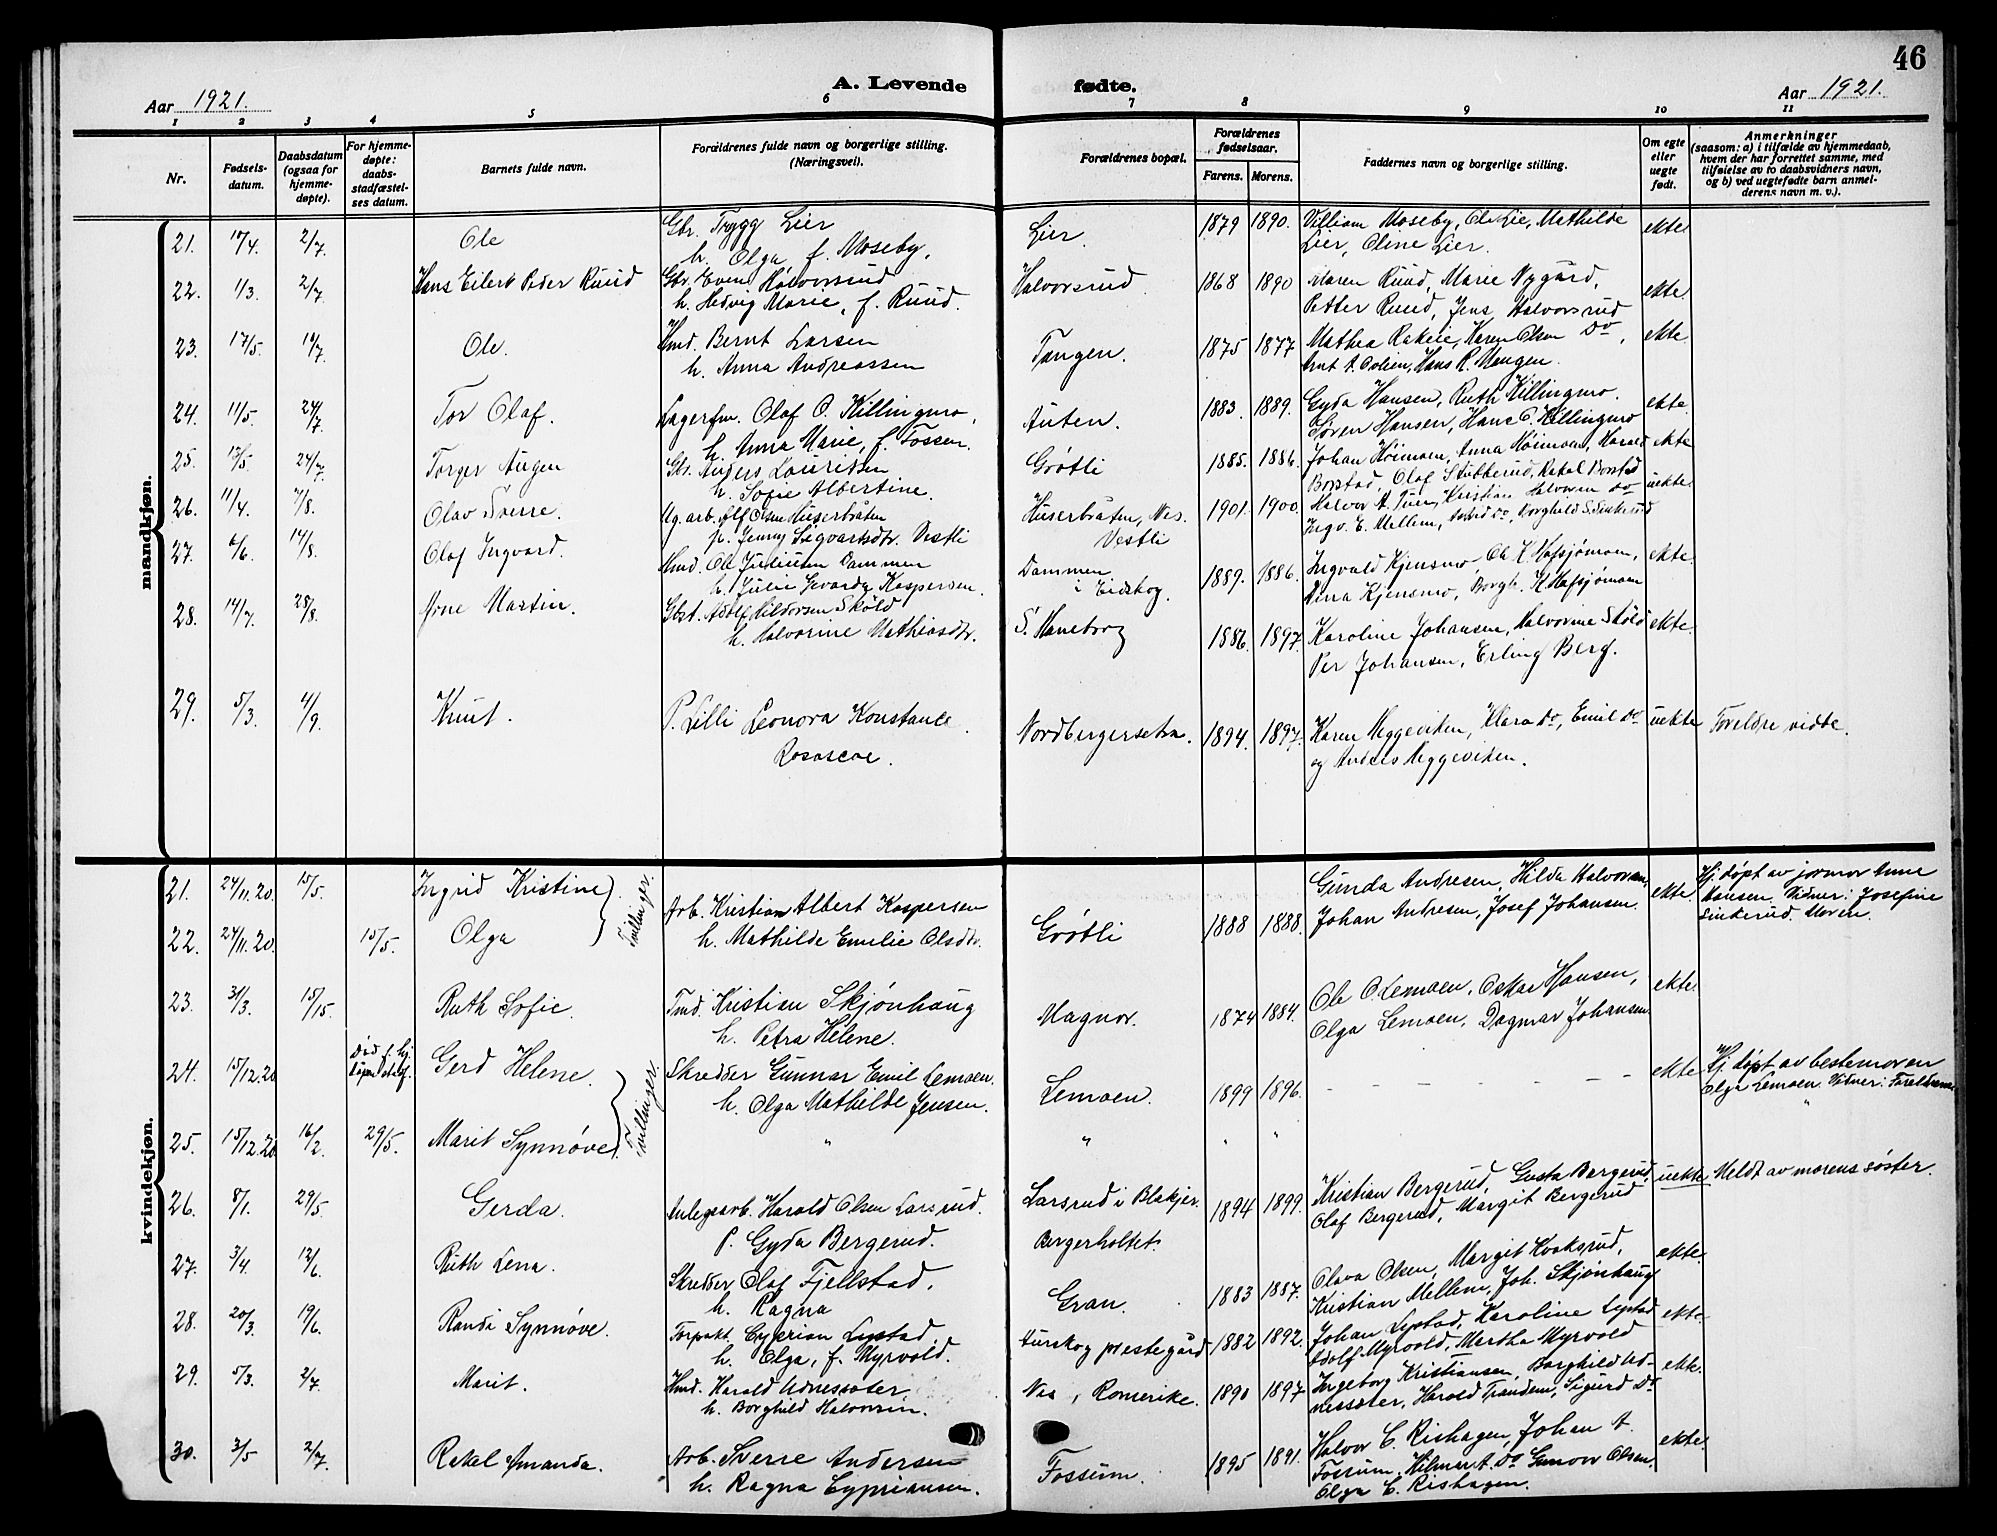 46
A. Levende fødte.
Aar 1921. Aar 1921.
1 2 3 4 5 6 7 8 9 10 11
Nr.
Fødsels-
datum.
Daabsdatum
(ogsaa for
hjemme-
døpte).
For hjemme-
døpte:
daabs-
stadfæstel-
ses datum.
Barnets fulde navn.
Forældrenes fulde navn og borgerlige stilling.
(Næringsvei).
Forældrenes bopæl.
Forældrenes
fødselsaar.
Farens. Morens.
Faddernes navn og borgerlige stilling.
Om egte
eller
uegte
født.
Anmerkninger
(saasom: a) i tilfælde av hjemmedaab,
hvem der har forrettet samme, med
tilføielse av to daabsvidners navn,
og b) ved uegtefødte barn anmel-
derens navn m. v.).
mandkjøn.
21. 17/4. 2/7 Ole Gbr. Trygg Lier Lier. 1879 1890. Villiam Moseby, Ole Lie, Mathilde ekte
h. Olga f. Moseby. Lier, Oline Lier.
22. 1/3. 2/7 Hans Eilert Peder Ruud Gbr. Even Halvorsrud Halvorsrud 1868 1890 Maren Ruud, Marie Nygård, ekte.
h. Hedvig Marie, f. Ruud. Petter Ruud, Jens Halvorsrud
23. 17/5. 10/7 Ole. Hmd. Bernt Larsen Tangen. 1875 1877 Mathea Rakeie, Karen Olsen do, ekte
h. Anna Andreassen Hans R. Mangen.
24. 11/5. 24/7 Tor Olaf. Lagerfm. Olaf O. Killingmo, Auten. 1883. 1889. Gyda Hansen, Ruth Killingmo. ekte.
h. Anna Marie, f. Fossen. Søren Hansen, Hans O. Killingmo
25. 13/5. 24/7 Torger Augen Gbr. Anders Lauridsen Grøtli 1885. 1886. Johan Høimoen, Anna Høimoen, Harald ekte
h. Sofie Albertine. Borstad, Olaf Stubberud, Rakel Borstad
26. 11/4. 7/8. Olav Sverre. Ug. arb. Alf Olsen Huserbråten Huserbråten, Nes. 1901. 1900. Halvor A. Tuen, Kristian Halvorsen do uekte.
p. Jenny Sigvartsdtr. Vestli Vestli Ingv. E. Mellem, Astrid do, Borghild Sinkerud
27. 6/6. 14/8. Olaf Ingvard. Hmd. Ole Juliusen Dammen Dammen 1889. 1886. Ingvald Kjensmo, Ole K. Hafsjømoen, ekte.
h. Julie Kaspersen. i Eidskog. Kjensmo, Borgh. K. Hafsjømoen
28. 14/7. 28/8. Arne Martin. Gbst. Adolf Hildorsen Sköld S. Haneborg 1886. 1897. Karoline Johansen, Halvorine Sköld ekte.
h. Halvorine Mathiasdtr. Per Johansen, Erling Berg.
29. 5/3. 4/9 Knut. P. Lilli Leonora Konstance Nordbergersetra. 1894. 1897. Karen Heggeviken, Klara do, Emil do uekte Foreldre vidte.
Rosascoe. og Anders Heggeviken.
kvindekjøn.
21. 24/11.20 15/5. Ingrid Kristine Tvillinger. Gunda Andresen, Hilda Halvorsen, ekte. Hj. døpt av jormor Anne
22. 24/11.20. 15/5. Olga Arb. Kristian Albert Kaspersen Grøtli 1888 1888. Johan Andresen, Josef Johansen Hansen. Vidner: Josefine
h. Mathilde Emilie Olsdtr. Sinkerud. Moren.
23. 31/3. 15/15. Ruth Sofie. Tmd. Kristian Skjønhaug Magnor. 1874 1884. Ole O. Lemoen, Oskar Hansen, ekte.
h. Petra Helene. Olga Lemoen, Dagmar Johansen
24. 15/12.20 død f. hj. Gerd Helene. Tvillinger. Skredder Gunnar Emil Lemoen. Lemoen. 1899 1896. – – – – – – ekte Hj. døpt av bestemoren
h. Olga Mathilde Jensen. Olga Lemoen Vidner: Foreldrene
25. 15/12.20 16/2 29/5. Marit Synnøve. " " " " "
26. 8/1. 29/5 Gerda. Anlegsarb. Harald Olsen Larsrud. Larsrud i Blakjer. 1894 1899. Kristian Bergerud, Gusta Bergerud, uekte. Meldt av morens søster.
P. Gyda Bergerud. Bergerholtet. Olaf Bergerud, Margit Bergerud
27. 3/4. 12/6. Ruth Lena. Skredder Olaf Fjellstad. Gran. 1883 1887. Olava Olsen, Margit Kvaksrud, ekte.
h. Ragna Kristian Mellem, Joh. Skjønhaug
28. 20/3 19/6. Randi Synnøve. Forpakt. Cyprian Lystad. Aurskog prestegård 1882 1892. Johan Lystad, Karoline Lystad ekte
h. Olga, f. Myrvold. Adolf Myrvold, Martha Myrvold
29. 5/3. 2/7 Marit. Hmd. Harald Udnesseter Nes, Romerike. 1890 1897 Ingeborg Kristiansen, Borghild Ud- ekte.
h. Borghild Halvorsen. nesseter, Harald Trandem, Sigurd do
30. 3/5 2/7. Rakel Amanda. Arb. Sverre Andersen Fossum. 1895 1891. Halvor C. Rishagen, Johan A. ekte
h. Ragna Cypriansen. Fossum, Hilmar A. do Gunvor Olsen.
Olga C. Rishagen.